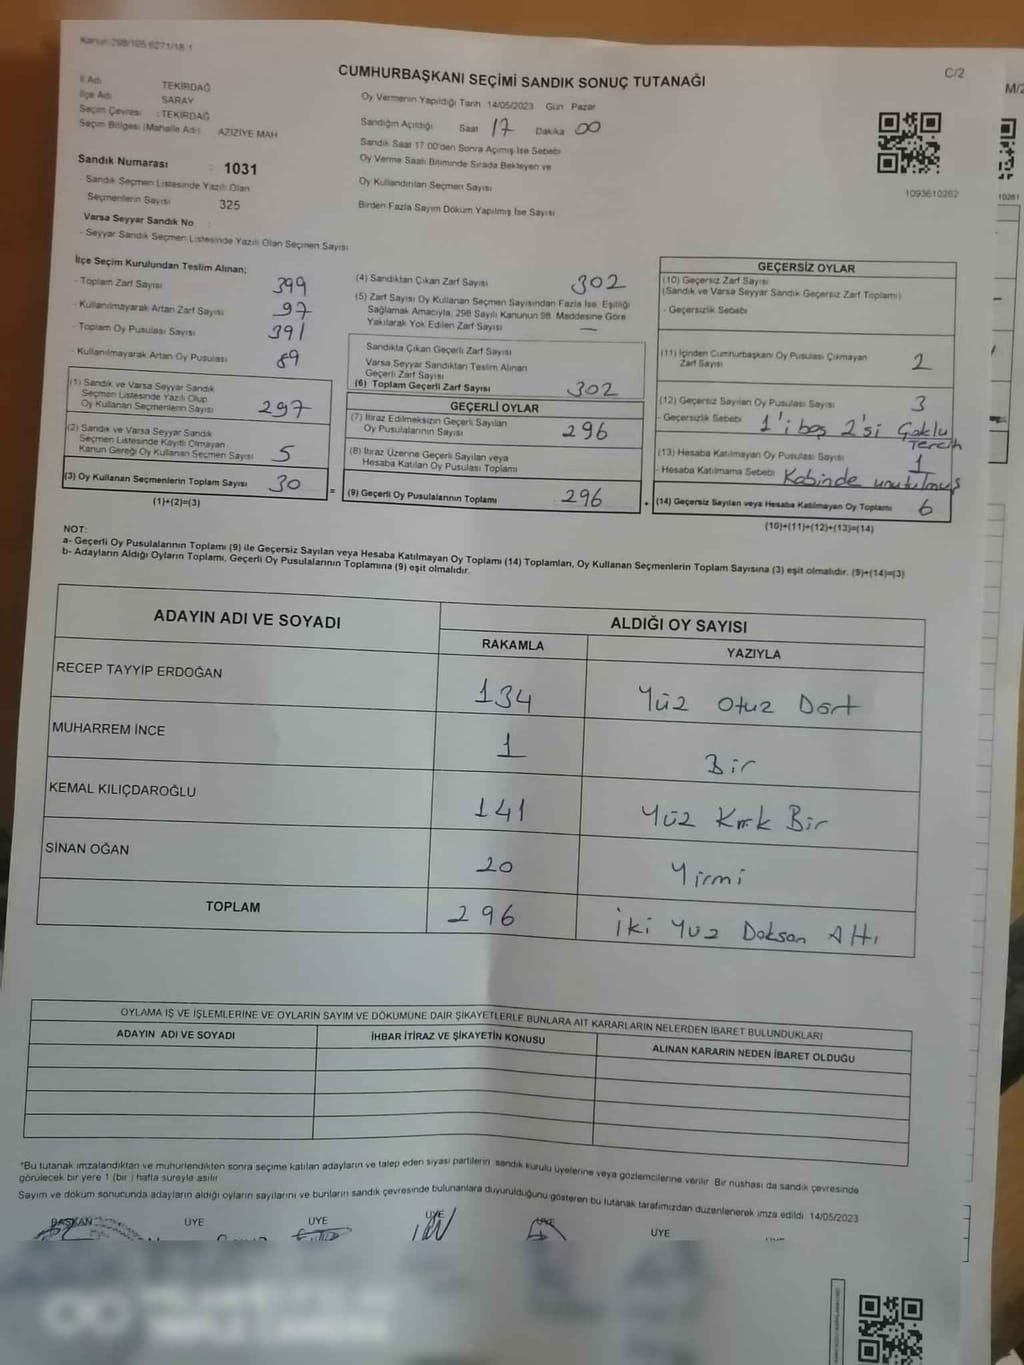 Kanun:298/105.6271/18-1
C/2
M/2
CUMHURBAŞKANI SEÇİMİ SANDIK SONUÇ TUTANAĞI
İl Adı TEKİRDAĞ
İlçe Adı SARAY
Seçim Çevresi : TEKİRDAĞ
Seçim Bölgesi (Mahalle Adı) AZIZIYE MAH
Oy Vermenin Yapıldığı Tarih 14/05/2023 Gün Pazar
Sandığın Açıldığı Saat 17 Dakika 00
Sandık Saat 17.00'den Sonra Açımış İse Sebebi
Oy Verme Saati Bitiminde Sırada Bekleyen ve
Oy Kullandırılan Seçmen Sayısı
Birden Fazla Sayım Döküm Yapılmış İse Sayısı
1093610262
10261
Sandık Numarası : 1031
- Sandık Seçmen Listesinde Yazılı Olan
Seçmenlerin Sayısı 325
Varsa Seyyar Sandık No
- Seyyar Sandık Seçmen Listesinde Yazılı Olan Seçmen Sayısı
İlçe Seçim Kurulundan Teslim Alınan;
- Toplam Zarf Sayısı 399
- Kullanılmayarak Artan Zarf Sayısı 97
- Toplam Oy Pusulası Sayısı 391
- Kullanılmayarak Artan Oy Pusulası 89
(1) Sandık ve Varsa Seyyar Sandık
Seçmen Listesinde Yazılı Olup
Oy Kullanan Seçmenlerin Sayısı 297
(2) Sandık ve Varsa Seyyar Sandık
Seçmen Listesinde Kayıtlı Olmayan
Kanun Gereği Oy Kullanan Seçmen Sayısı 5
(3) Oy Kullanan Seçmenlerin Toplam Sayısı 30
(1)+(2)=(3)
(4) Sandıktan Çıkan Zarf Sayısı 302
(5) Zarf Sayısı Oy Kullanan Seçmen Sayısından Fazla İse, Eşitliği
Sağlamak Amacıyla, 298 Sayılı Kanunun 98. Maddesine Göre
Yakılarak Yok Edilen Zarf Sayısı —
Sandıkta Çıkan Geçerli Zarf Sayısı
Varsa Seyyar Sandıktan Teslim Alınan
Geçerli Zarf Sayısı
(6) Toplam Geçerli Zarf Sayısı 302
GEÇERLİ OYLAR
(7) İtiraz Edilmeksizin Geçerli Sayılan
Oy Pusulalarının Sayısı 296
(8) İtiraz Üzerine Geçerli Sayılan veya
Hesaba Katılan Oy Pusulası Toplamı
(9) Geçerli Oy Pusulalarının Toplamı 296
GEÇERSİZ OYLAR
(10) Geçersiz Zarf Sayısı
(Sandık ve Varsa Seyyar Sandık Geçersiz Zarf Toplamı)
- Geçersizlik Sebebi
(11) İçinden Cumhurbaşkanı Oy Pusulası Çıkmayan
Zarf Sayısı 2
(12) Geçersiz Sayılan Oy Pusulası Sayısı 3
- Geçersizlik Sebebi 1'i boş 2'si Çoklu
Tercih
(13) Hesaba Katılmayan Oy Pusulası Sayısı 1
- Hesaba Katılmama Sebebi Kabinde unutulmuş
(14) Geçersiz Sayılan veya Hesaba Katılmayan Oy Toplamı 6
(10)+(11)+(12)+(13)=(14)
NOT:
a- Geçerli Oy Pusulalarının Toplamı (9) ile Geçersiz Sayılan veya Hesaba Katılmayan Oy Toplamı (14) Toplamları, Oy Kullanan Seçmenlerin Toplam Sayısına (3) eşit olmalıdır. (9)+(14)=(3)
b- Adayların Aldığı Oyların Toplamı, Geçerli Oy Pusulalarının Toplamına (9) eşit olmalıdır.
ADAYIN ADI VE SOYADI ALDIĞI OY SAYISI
RAKAMLA YAZIYLA
RECEP TAYYİP ERDOĞAN 134 Yüz Otuz Dört
MUHARREM İNCE 1 Bir
KEMAL KILIÇDAROĞLU 141 Yüz Kırk Bir
SİNAN OĞAN 20 Yirmi
TOPLAM 296 İki Yüz Doksan Altı
OYLAMA İŞ VE İŞLEMLERİNE VE OYLARIN SAYIM VE DÖKÜMÜNE DAİR ŞİKAYETLERLE BUNLARA AİT KARARLARIN NELERDEN İBARET BULUNDUKLARI
ADAYIN ADI VE SOYADI İHBAR İTİRAZ VE ŞİKAYETİN KONUSU ALINAN KARARIN NEDEN İBARET OLDUĞU
*Bu tutanak imzalandıktan ve mühürlendikten sonra seçime katılan adayların ve talep eden siyasi partilerin sandık kurulu üyelerine veya gözlemcilerine verilir. Bir nüshası da sandık çevresinde
görülecek bir yere 1 (bir) hafta süreyle asılır
Sayım ve döküm sonucunda adayların aldığı oyların sayılarını ve bunların sandık çevresinde bulunanlara duyurulduğunu gösteren bu tutanak tarafımızdan düzenlenerek imza edildi. 14/05/2023
BAŞKAN ÜYE ÜYE ÜYE ÜYE ÜYE